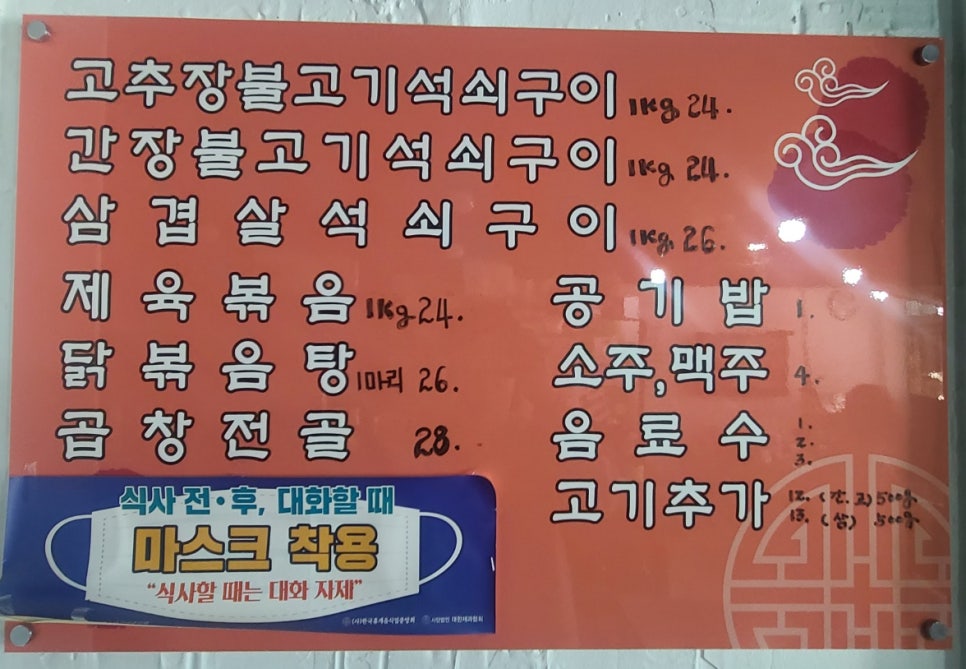 고추장불고기석쇠구이 1kg 24.
간장불고기석쇠구이 1kg 24.
삼겹살석쇠구이 1kg. 26.
제육볶음 1kg 24.
닭볶음탕 1마리 26.
곱창전골 28.
공기밥 1.
소주,맥주 4.
음료수 1.
2.
3.
고기추가 12. (간.고) 500g
13. (삼) 500g
식사 전·후, 대화할 때
마스크 착용
"식사할 때는 대화 자제"
(사)한국휴게음식업중앙회 사단법인 대한제과협회